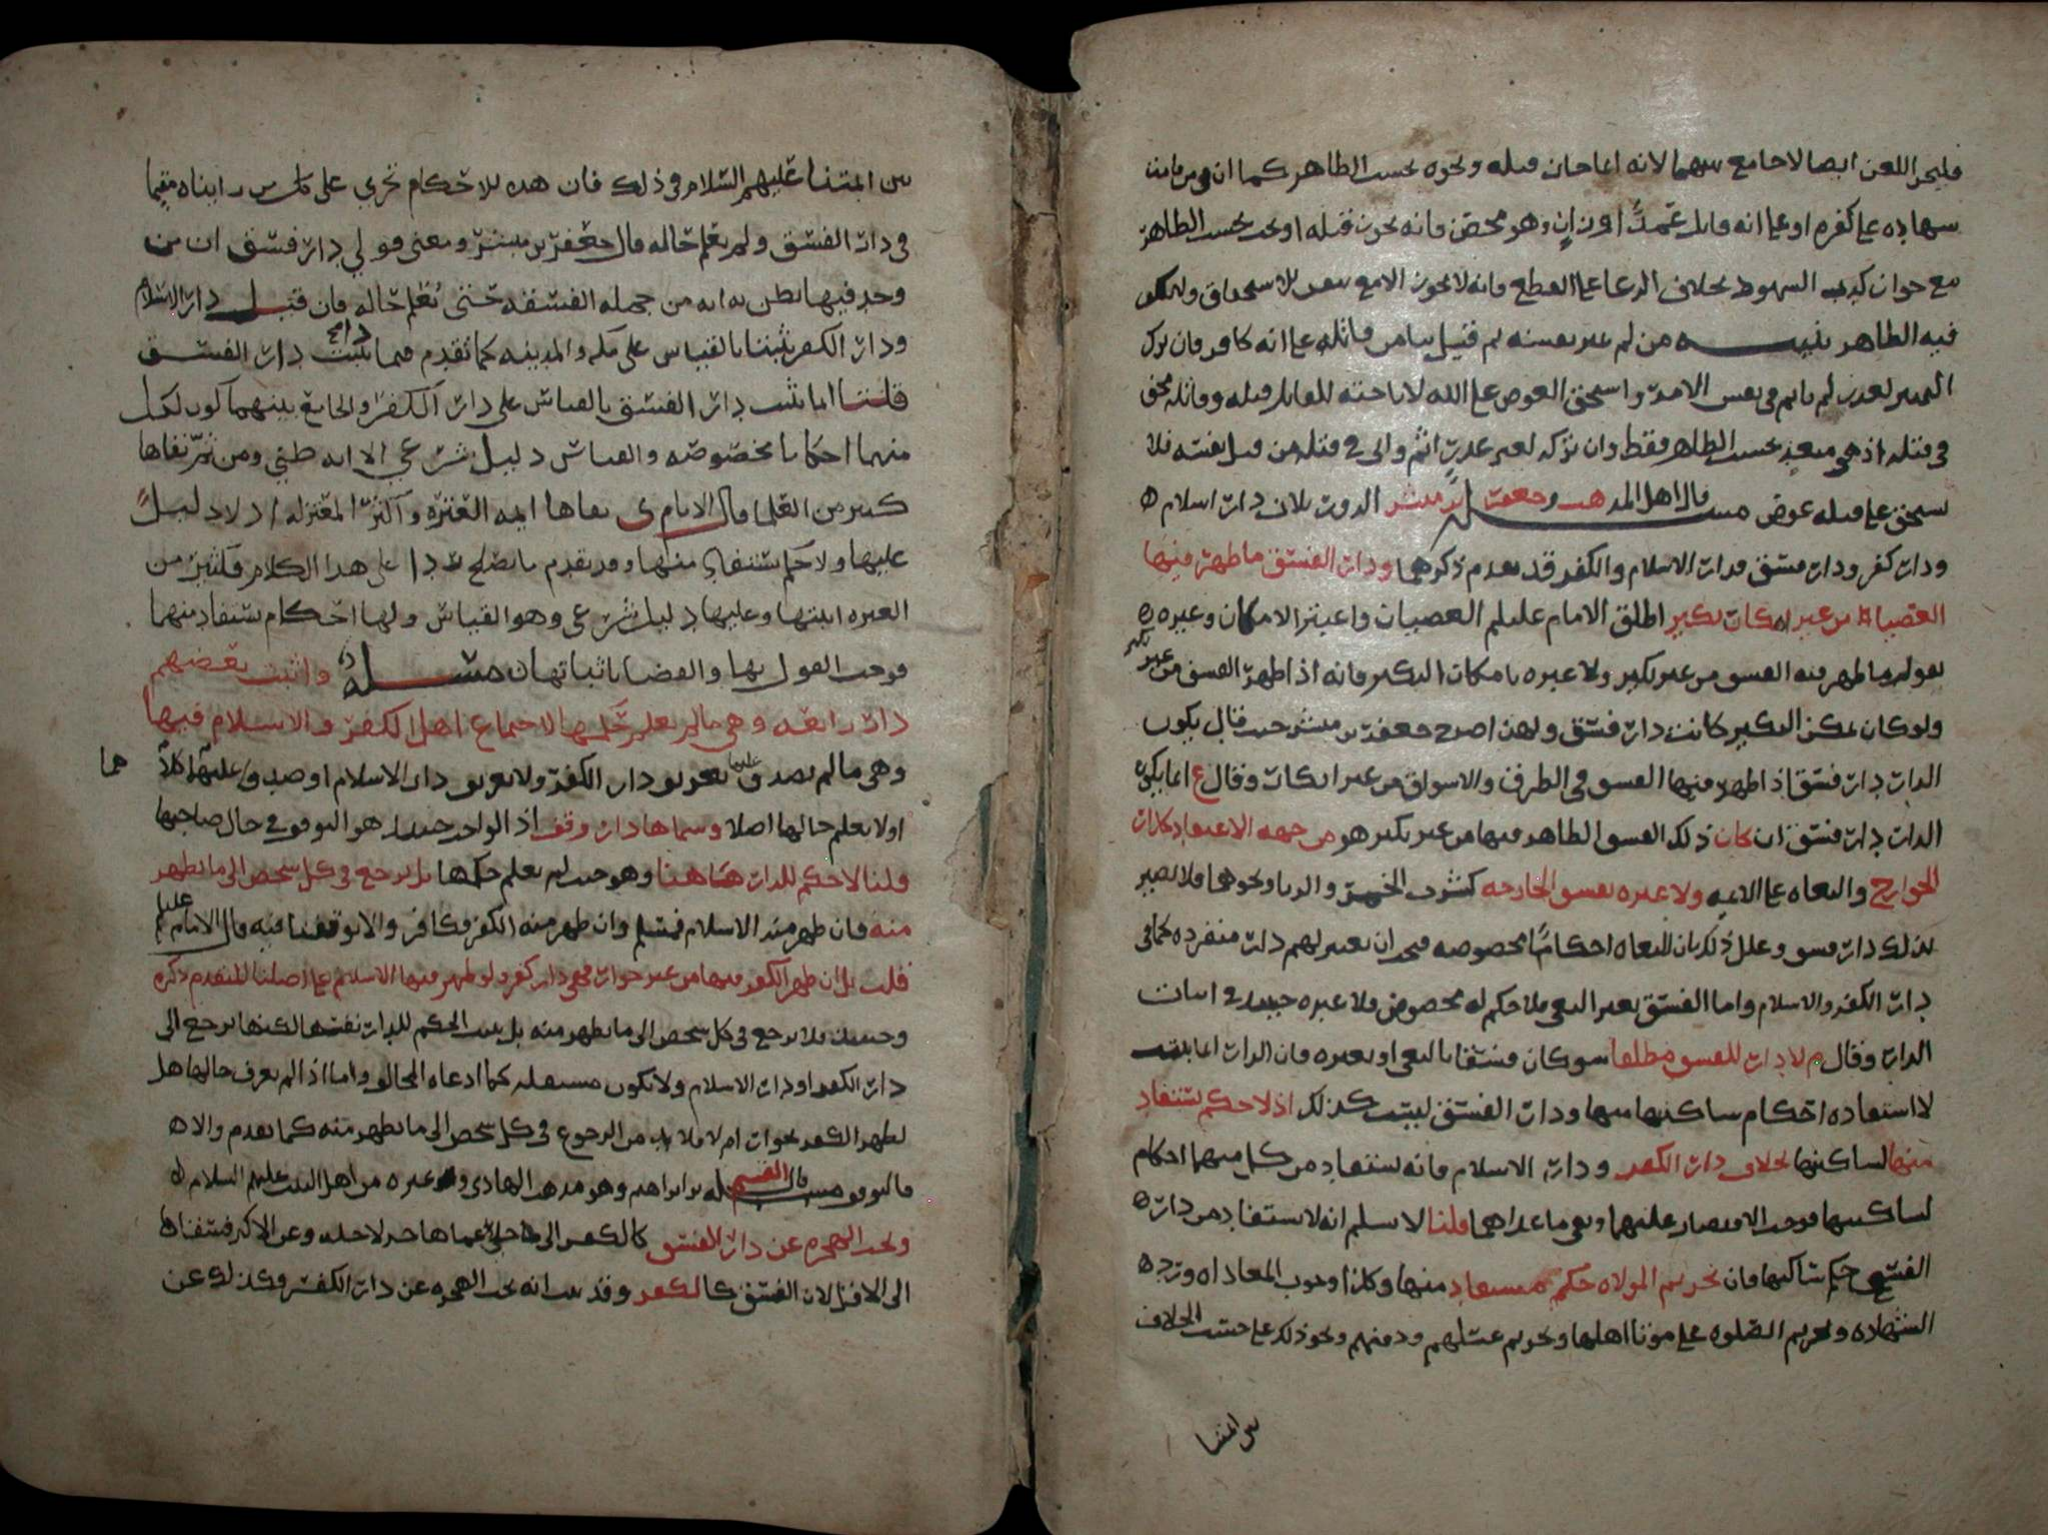 فليجز اللعن ايضا لا جامع بينهما لانه انما جاز قتله ونحوه بحسب الظاهر كما ان من قامت
شهاده على كفره او على انه قاتل عمدًا او زانٍ وهو محصن فانه يجوز قتله او يحد بحسب الظاهر
مع جواز كذب الشهود بخلاف الدعا على القطع فانه لا يجوز الا مع الاستحقاق وليكف
فيه الظاهر تنبيه من لم غير نفسه لم قتيل بنا من قاتله على انه كافر فان ترك
لعذر لم ياثم في نفس الامر واستحق العوض على الله لاباحته للقاتل قتله وقاتله محق
في قتله اذ هو متعبد بحسب الظاهر فقط وان تركه لغير عذرٍ اثم والى في قتله من قبل نفسه فلا
يستحق على قتله عوض مسله قال اهل المذهب وجعفر بن مبشر الدور ثلاث دار اسلام ه
ودار كفر ودار فسق فدار الاسلام والكفر قد تقدم ذكرهما ودار الفسق ما ظهر فيها
العصيان من غير امكان نكير اطلق الامام عليلم العصيان واعتبر الامكان وغيره ه
بقوله ما ظهر فيه الفسق من غير نكير ولا عبره بامكان النكير فانه اذا ظهر الفسق من غير نكير
ولو كان يمكن النكير كانت دار فسق ولهذا صرح جعفر بن مبشر حيث قال يكون
الدار دار فسق اذا ظهر فيها الفسق في الطرق والاسواق من غير انكار وقال ع انما يكون
الدار دار فسق ان كان ذلك الفسق الظاهر فيها من غير نكير هو من جهه الاعتقاد كدار
الخوارج والبغاه على الائمه ولا عبره بفسق الجارحه كشرب الخمر والزنا ونحوهما فلا تصير
بذلك دار فسق وعلل ذلك بان للبغاه احكامًا مخصوصه فيجب ان تعتبر لهم دار منفرده كما في
دار الكفر والاسلام واما الفسق بغير البغي فلا حكم له مخصوص فلا عبره حينئذ في اثبات
الدار وقال م لا دار للفسق مطلقا سوى كان فسقا بالبغي او بغيره فان الدار انما يثبت
لاستفاده احكام ساكنها منها ودار الفسق ليست كذلك اذ لا حكم يستفاد
منها لساكنها بخلاف دار الكفر ودار الاسلام فانه يستفاد من كل منهما احكام
لساكنيها فوجب الاقتصار عليهما ونفي ما عداهما قلنا لا نسلم انه لا يستفاد من دار ه
الفسق حكم ساكنها فان تحريم الموالاه حكم مستفاد منها وكذا وجوب المعاداه ورد ه
الشهاده وتحريم الصلوه على موتا اهلها وتحريم غسلهم ودفنهم ونحو ذلك على حسب الخلاف
بين ائمتنا
بين ائمتنا عليهم السلام في ذلك فان هذه الاحكام تجري على كل من رايناه مقيما
في دار الفسق ولم يعلم حاله قال جعفر بن مبشر ومعنى قولي دار فسق ان من
وجد فيها يظن به انه من جمله الفسقه حتى يعلم حاله فان قيل دار الاسلام
ودار الكفر ثبتنا بالقياس على مكه والمدينه كما تقدم فبما تثبت دار الفسق
قلنا انما ثبت دار الفسق بالقياس على دار الكفر والجامع بينهما كون لكل
منهما احكاما مخصوصه والقياس دليل شرعي الا انه ظني ومن ثم نفاها
كثير من العلما قال الامام ى نفاها ايمه العتره واكثر المعتزله اذ لا دليل
عليها ولا حكم يستفاد منها وقد تقدم ما يصلح ردا على هذا الكلام فكثير من
العتره اثبتها وعليها دليل شرعي وهو القياس ولها احكام تستفاد منهما
فوجب القول بها والقضا باثباتها مسله واثبت بعضهم
دار رابعه وهي ما لم يعلم حكمها لاجتماع اهل الكفر والاسلام فيها
وهي ما لم يصدق عليها تعريف دار الكفر ولا تعريف دار الاسلام او صدق عليها كلاهما
او لا يعلم حالها اصلا وسماها دار وقف اذ الواجب حينئذ هو التوقف في حال صاحبها
قلنا لا حكم للدار هاهنا وهو حيث لم يعلم حكمها بل نرجع في كل شخص الى ما يظهر
منه فان ظهر منه الاسلام فمسلم وان ظهر منه الكفر فكافر والا توقفنا فيه قال الامام عليلم
قلت بل ان ظهر الكفر فيها من غير جوار فهي دار كفر ولو ظهر فيها الاسلام على اصلنا المتقدم ذكره
وحينئذ فلا نرجع في كل شخص الى ما يظهر منه بل يثبت الحكم للدار نفسها لكنها ترجع الى
دار الكفر او دار الاسلام ولا تكون مستقله كما ادعاه المخالف واما اذا لم يعرف حالها هل
لظهر الكفر بجوار ام لا فلا بد من الرجوع في كل شخص الى ما يظهر منه كما تقدم والا ه
فالتوقف مسله قال القسم بن ابراهيم وهو مذهب الهادي وغيره من اهل البيت عليهم السلام ه
وتجب الهجره عن دار الفسق كالكفر الى ما خلى عما هاجر لاجله وعن الاكثر فسقا ه
الى الاقل لان الفسق كالكفر وقد ثبت انه يجب الهجره عن دار الكفر وكذلك عن